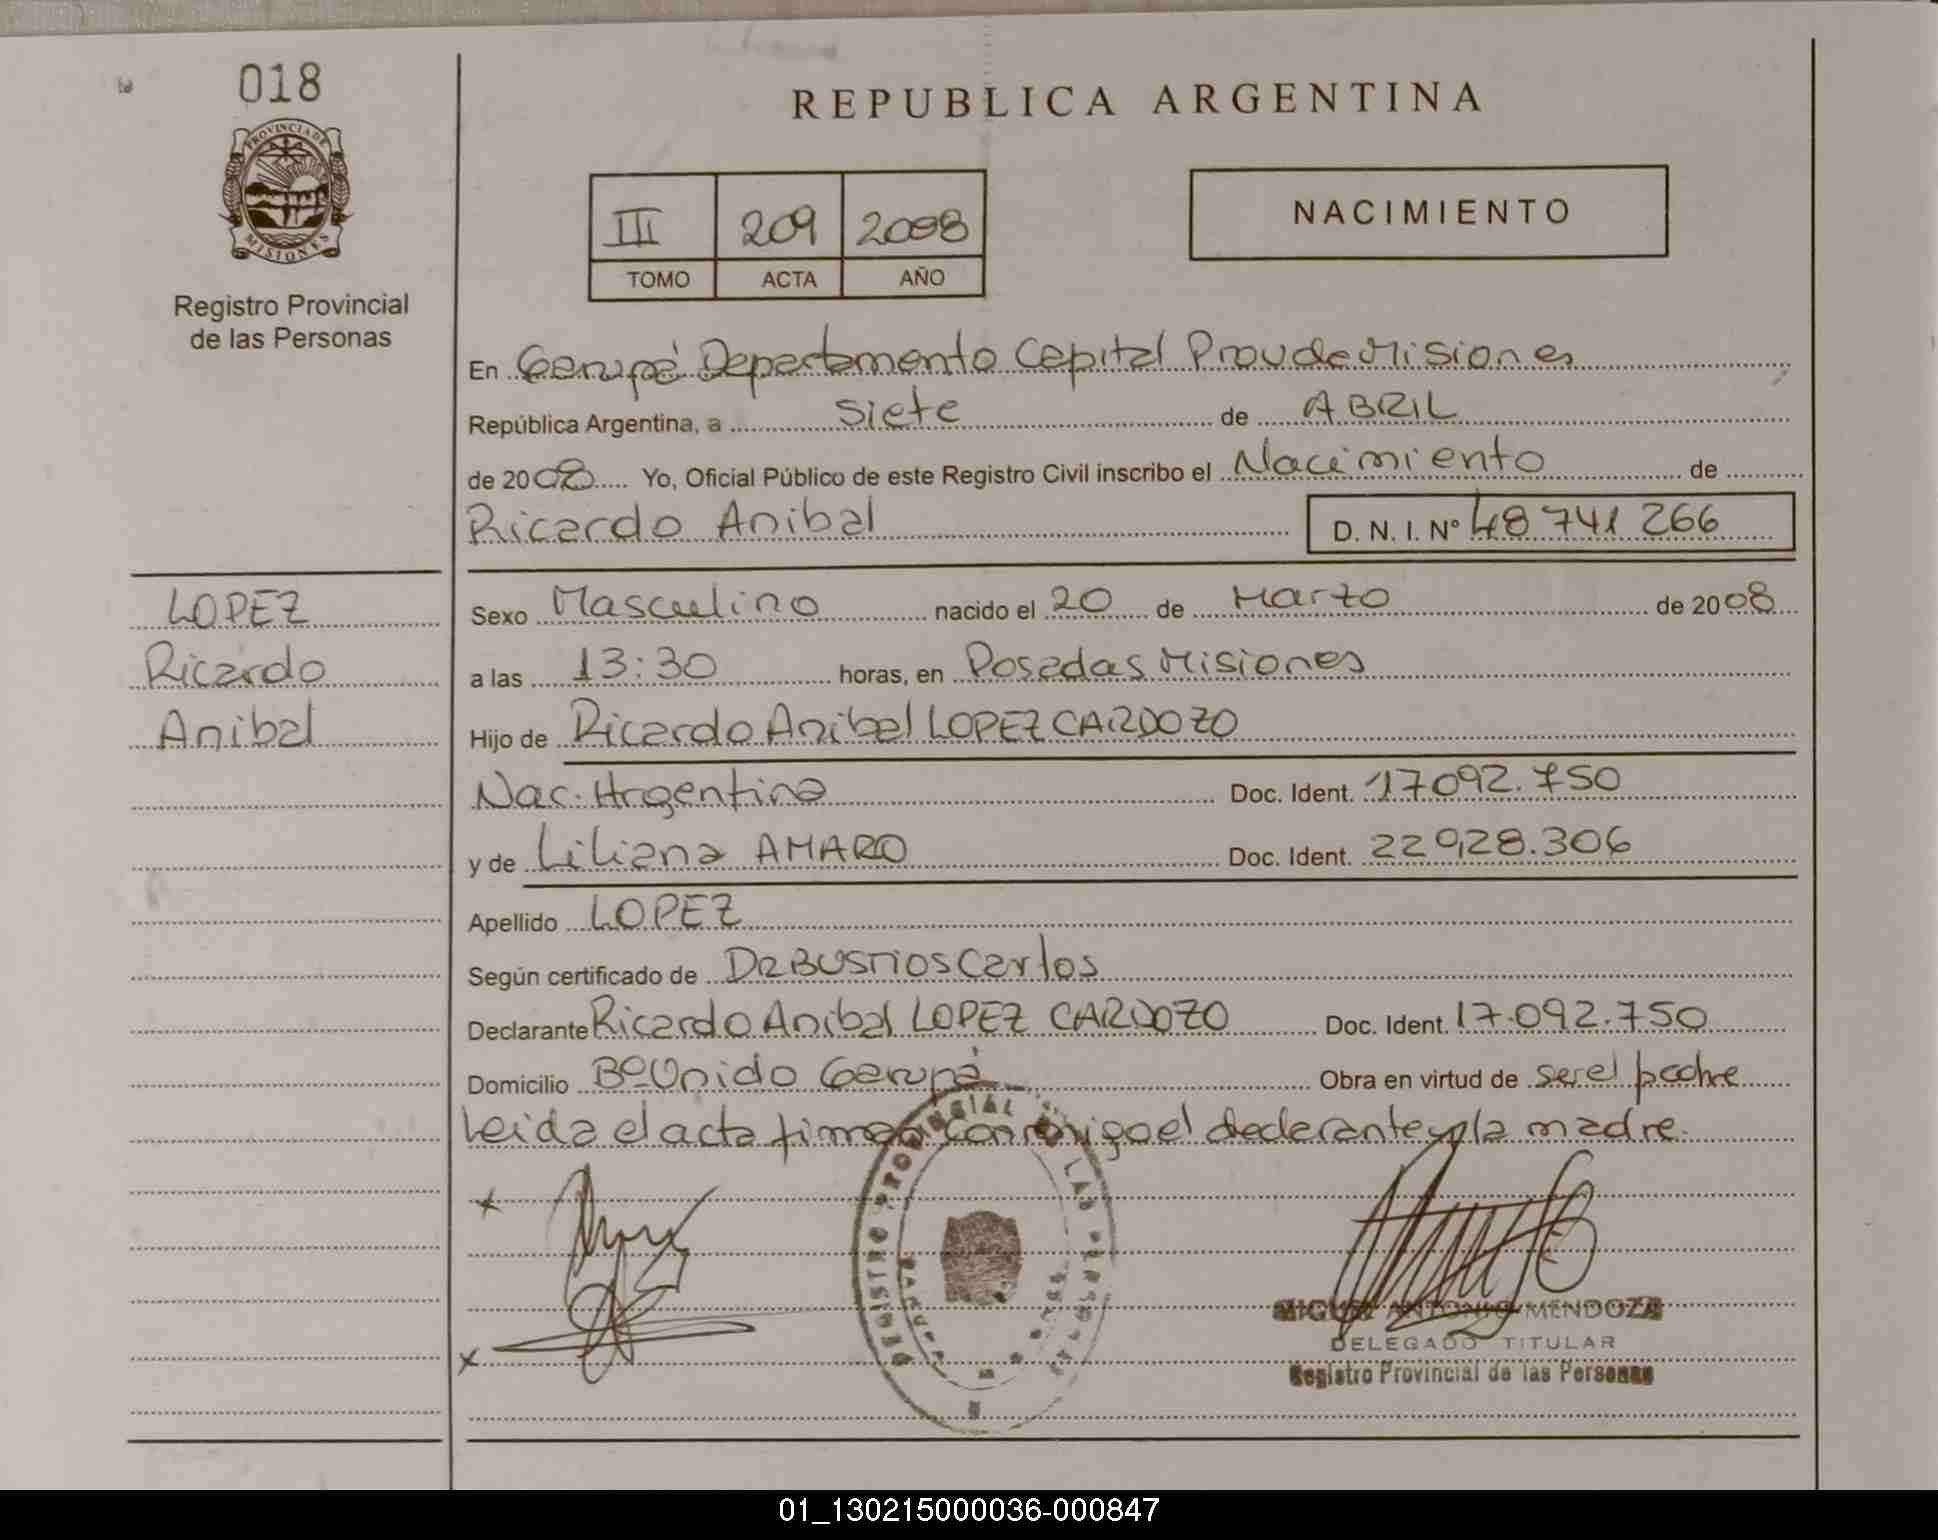 018
PROVINCIA DE
MISIONES
Registro Provincial
de las Personas
REPUBLICA ARGENTINA
III 209 2008
TOMO ACTA AÑO
NACIMIENTO
En Garupá Departamento Capital Prov de Misiones
República Argentina, a siete de ABRIL
de 2008 Yo, Oficial Público de este Registro Civil inscribo el Nacimiento de
Ricardo Anibal D. N. I. Nº 48 741 266
LOPEZ
Ricardo
Anibal
Sexo Masculino nacido el 20 de Marzo de 2008
a las 13:30 horas, en Posadas Misiones
Hijo de Ricardo Anibal LOPEZ CARDOZO
Nac. Argentina Doc. Ident. 17092.750
y de Liliana AMARO Doc. Ident. 22028.306
Apellido LOPEZ
Según certificado de DR BUSTIOS Carlos
Declarante Ricardo Anibal LOPEZ CARDOZO Doc. Ident. 17.092.750
Domicilio Bº Unido Garupá Obra en virtud de ser el padre
Leida el acta firman conmigo el declarante y la madre.
x
x
REGISTRO PROVINCIAL DE LAS PERSONAS
GARUPA
MIGUEL ANTONIO MENDOZA
DELEGADO TITULAR
Registro Provincial de las Personas
01_130215000036-000847